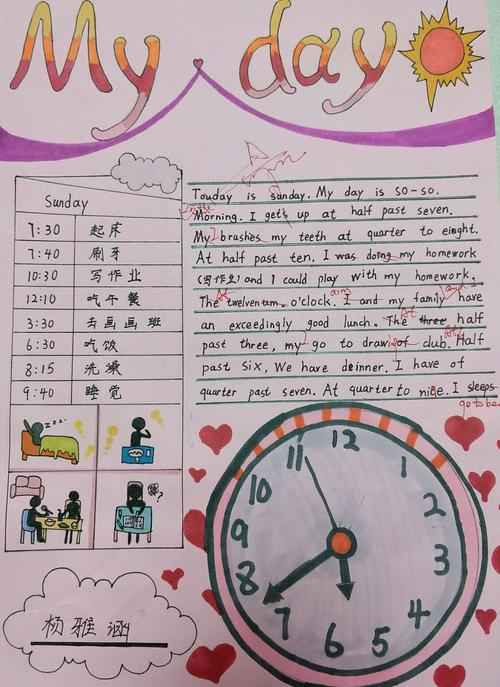 My day
Sunday
7:30 起床
7:40 刷牙
10:30 写作业
12:10 吃午餐
3:30 去画画班
6:30 吃饭
8:15 洗澡
9:40 睡觉
zzz
?
杨雅涵
Touday is sunday. My day is so-so.
Morning. I gets up at half past seven.
My brushes my teeth at quarter to einght.
At half past ten. I was doing my homework
(写作业) and I could play with my homework.
The twelventam. o'clock. I and my family have
an exceedingly good lunch. The three half
past three, my go to drawing of club. Half
past six. We have dinner. I have of
quarter past seven. At quarter to nine. I sleeps
go to be
12
1
2
3
4
5
6
7
8
9
10
11